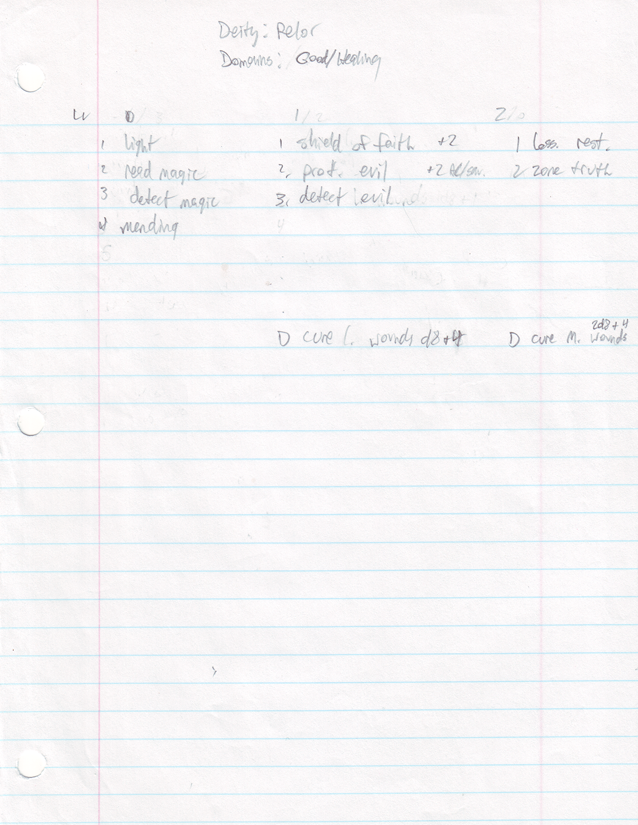 Deity: Pelor
Domains: Good/Healing
Lv 0 1/2 2/
1 light 1 shield of faith +2 1 less. rest.
2 read magic 2. prot. evil +2 2 zone truth
3 detect magic 3. detect evil
4 mending 4
5
2d8+4
D cure l. wounds d8+4 D cure M. wounds